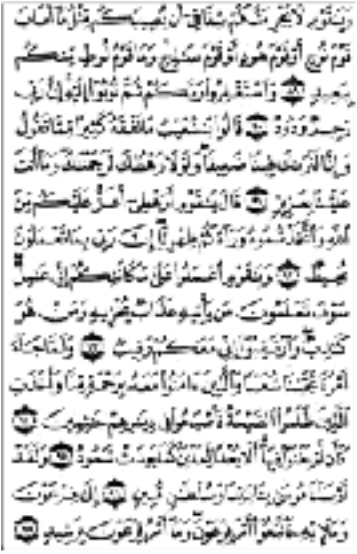 وَيَٰقَوْمِ لَا يَجْرِمَنَّكُمْ شِقَاقِىٓ أَن يُصِيبَكُم مِّثْلُ مَآ أَصَابَ
قَوْمَ نُوحٍ أَوْ قَوْمَ هُودٍ أَوْ قَوْمَ صَٰلِحٍ وَمَا قَوْمُ لُوطٍ مِّنكُم
بِبَعِيدٍ ٨٩ وَٱسْتَغْفِرُوا۟ رَبَّكُمْ ثُمَّ تُوبُوٓا۟ إِلَيْهِ إِنَّ رَبِّى
رَحِيمٌ وَدُودٌ ٩٠ قَالُوا۟ يَٰشُعَيْبُ مَا نَفْقَهُ كَثِيرًا مِّمَّا تَقُولُ
وَإِنَّا لَنَرَىٰكَ فِينَا ضَعِيفًا وَلَوْلَا رَهْطُكَ لَرَجَمْنَٰكَ وَمَآ أَنتَ
عَلَيْنَا بِعَزِيزٍ ٩١ قَالَ يَٰقَوْمِ أَرَهْطِىٓ أَعَزُّ عَلَيْكُم مِّنَ
ٱللَّهِ وَٱتَّخَذْتُمُوهُ وَرَآءَكُمْ ظِهْرِيًّا إِنَّ رَبِّى بِمَا تَعْمَلُونَ
مُحِيطٌ ٩٢ وَيَٰقَوْمِ ٱعْمَلُوا۟ عَلَىٰ مَكَانَتِكُمْ إِنِّى عَٰمِلٌ
سَوْفَ تَعْلَمُونَ مَن يَأْتِيهِ عَذَابٌ يُخْزِيهِ وَمَنْ هُوَ
كَٰذِبٌ وَٱرْتَقِبُوٓا۟ إِنِّى مَعَكُمْ رَقِيبٌ ٩٣ وَلَمَّا جَآءَ
أَمْرُنَا نَجَّيْنَا شُعَيْبًا وَٱلَّذِينَ ءَامَنُوا۟ مَعَهُۥ بِرَحْمَةٍ مِّنَّا وَأَخَذَتِ
ٱلَّذِينَ ظَلَمُوا۟ ٱلصَّيْحَةُ فَأَصْبَحُوا۟ فِى دِيَٰرِهِمْ جَٰثِمِينَ ٩٤
كَأَن لَّمْ يَغْنَوْا۟ فِيهَآ أَلَا بُعْدًا لِّمَدْيَنَ كَمَا بَعِدَتْ ثَمُودُ ٩٥ وَلَقَدْ
أَرْسَلْنَا مُوسَىٰ بِـَٔايَٰتِنَا وَسُلْطَٰنٍ مُّبِينٍ ٩٦ إِلَىٰ فِرْعَوْنَ
وَمَلَإِي۟هِۦ فَٱتَّبَعُوٓا۟ أَمْرَ فِرْعَوْنَ وَمَآ أَمْرُ فِرْعَوْنَ بِرَشِيدٍ ٩٧